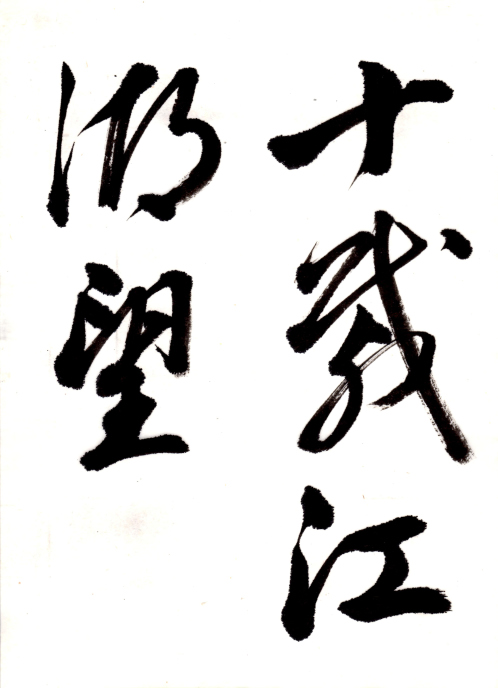 十載江
湖望